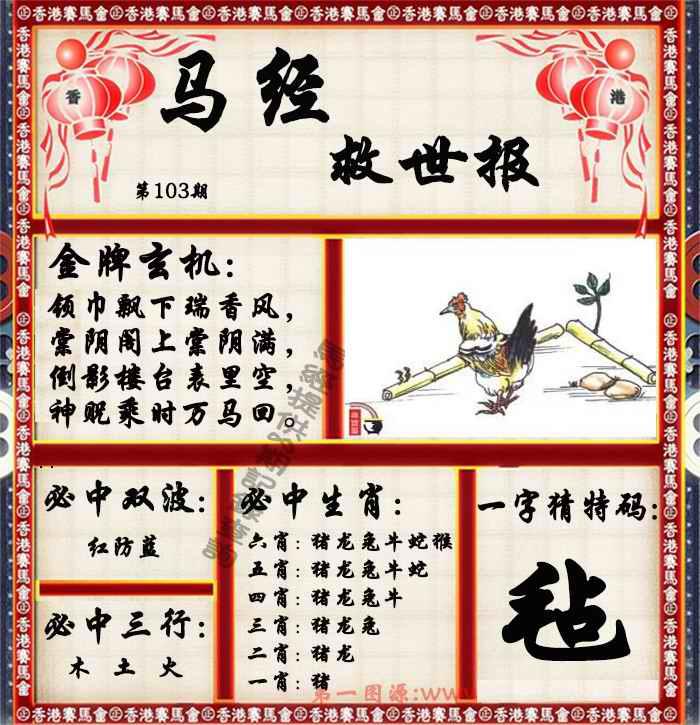 香 港
马经
救世报
第103期
金牌玄机：
领巾飘下瑞香风，
棠阴阁上棠阴满，
倒影楼台表里空，
神贶乘时万马回。
必中双波：
红防蓝
必中三行：
木 土 火
必中生肖：
六肖：猪龙兔牛蛇猴
五肖：猪龙兔牛蛇
四肖：猪龙兔牛
三肖：猪龙兔
二肖：猪龙
一肖：猪
一字猜特码：
毡
第一图源:www
香港赛馬會㊣香港赛馬會㊣香港赛馬會㊣香港赛馬會